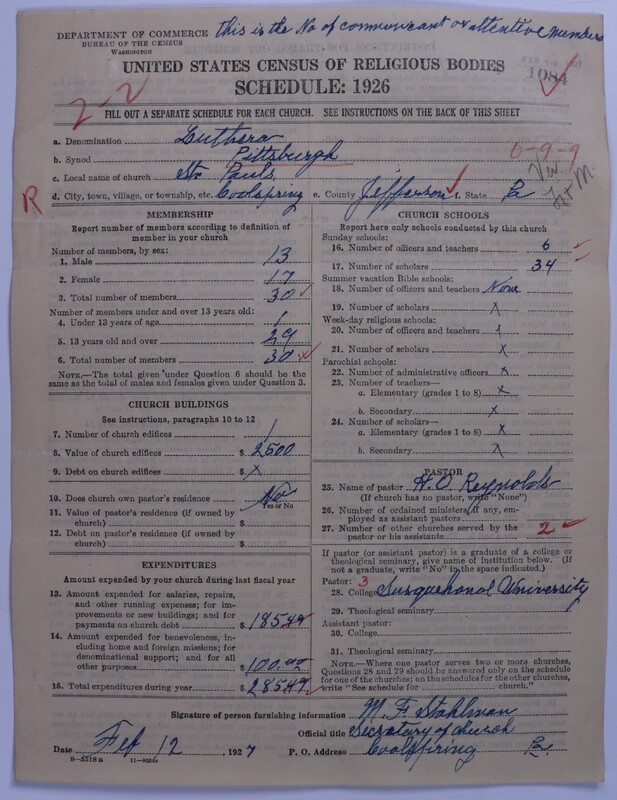 DEPARTMENT OF COMMERCE
BUREAU OF THE CENSUS
WASHINGTON
This is the No of communant or attentive members
UNITED STATES CENSUS OF RELIGIOUS BODIES
SCHEDULE: 1926
1084
2-2
FILL OUT A SEPARATE SCHEDULE FOR EACH CHURCH. SEE INSTRUCTIONS ON THE BACK OF THIS SHEET
a. Denomination Luthera
b. Synod Pittsburgh
0-9-9
c. Local name of church St Pauls
R
d. City, town, village, or township, etc. Coolspring e. County Jefferson f. State Pa
MEMBERSHIP
Report number of members according to definition of
member in your church
Number of members, by sex:
1. Male 13
2. Female 17
3. Total number of members 30
Number of members under and over 13 years old:
4. Under 13 years of age 1
5. 13 years old and over 29
6. Total number of members 30
NOTE.—The total given under Question 6 should be
same as the total of males and females given under Question 3.
CHURCH BUILDINGS
See instructions, paragraphs 10 to 12
7. Number of church edifices 1
8. Value of church edifices $ 2500
9. Debt on church edifices $ X
10. Does church own pastor's residence No
Yes or No
11. Value of pastor's residence (if owned by
church) $
12. Debt on pastor's residence (if owned by
church) $
EXPENDITURES
Amount expended by your church during last fiscal year
13. Amount expended for salaries, repairs,
and other running expenses; for im-
provements or new buildings; and for
payments on church debt $ 185 49
14. Amount expended for benevolences, in-
cluding home and foreign missions; for
denominational support; and for all
other purposes $ 100.00
15. Total expenditures during year $ 285 49
CHURCH SCHOOLS
Report here only schools conducted by this church
Sunday schools:
16. Number of officers and teachers 6
17. Number of scholars 34
Summer vacation Bible schools:
18. Number of officers and teachers None
19. Number of scholars X
Week-day religious schools:
20. Number of officers and teachers
21. Number of scholars X
Parochial schools:
22. Number of administrative officers X
23. Number of teachers—
a. Elementary (grades 1 to 8) X
b. Secondary X
24. Number of scholars—
a. Elementary (grades 1 to 8) X
b. Secondary X
PASTOR
25. Name of pastor H. O. Reynolds
(If church has no pastor, write "None")
26. Number of ordained ministers, if any, em-
ployed as assistant pastors
27. Number of other churches served by the
pastor or his assistants 2
If pastor (or assistant pastor) is a graduate of a college or
theological seminary, give name of institution below. (If
not a graduate, write "No" in the space indicated.)
Pastor: 3
28. College Susquehanal University
29. Theological seminary
Assistant pastor:
30. College
31. Theological seminary
NOTE.—Where one pastor serves two or more churches,
Questions 28 and 29 should be answered only on the schedule
for one of the churches; on the schedules for the other churches,
write "See schedule for church."
Signature of person furnishing information M. F. Stahlman
Official title Secratary of church
Date Feb 12, 1927 P. O. Address Coolspring Pa
8-5318 a